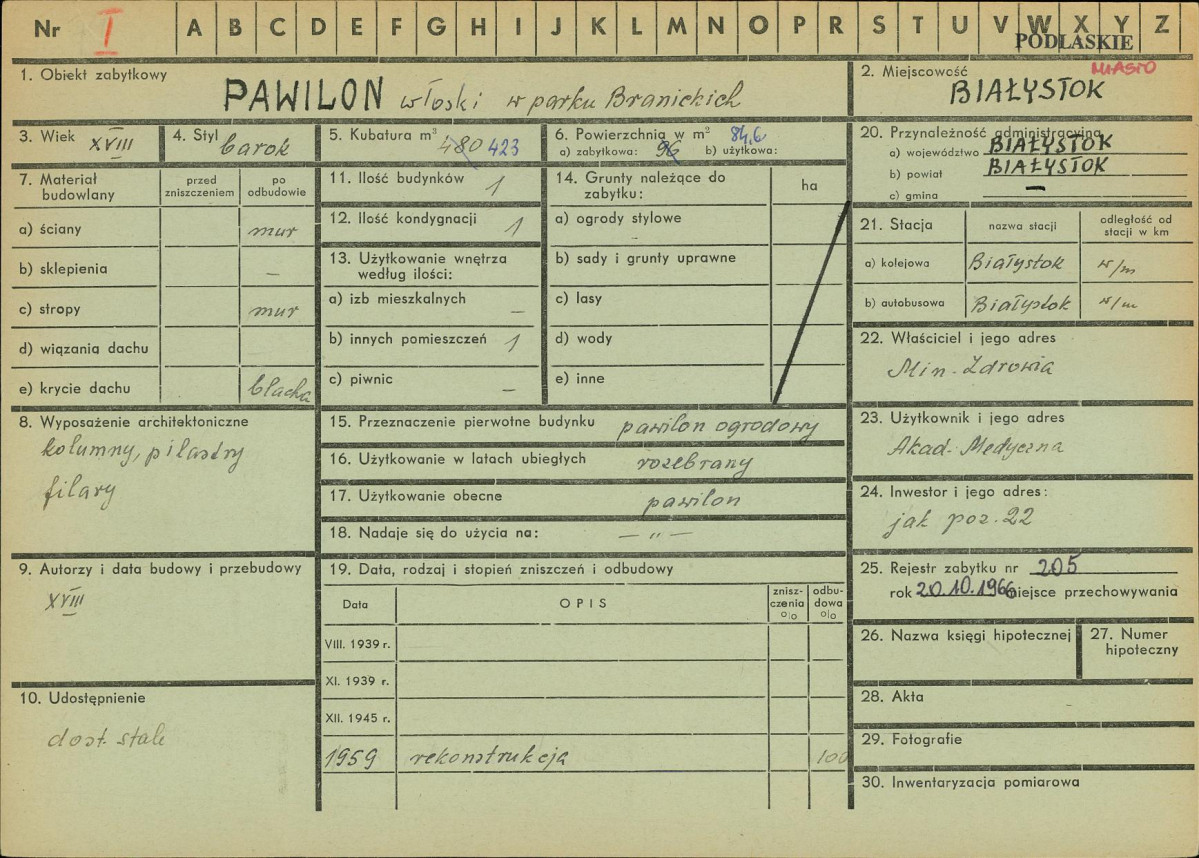 Nr I A B C D E F G H I J K L M N O P R S T U V W X Y Z
PODLASKIE
1. Obiekt zabytkowy
PAWILON włoski w parku Branickich
2. Miejscowość
MIASTO
BIAŁYSTOK
3. Wiek XVIII
4. Styl barok
5. Kubatura m³
480 423
6. Powierzchnia w m² 84,6
a) zabytkowa: 96 b) użytkowa:
7. Materiał budowlany
przed zniszczeniem
po odbudowie
a) ściany mur
b) sklepienia –
c) stropy mur
d) wiązania dachu
e) krycie dachu blacha
8. Wyposażenie architektoniczne
kolumny, pilastry
filary
9. Autorzy i data budowy i przebudowy
XVIII
10. Udostępnienie
dost. stale
11. Ilość budynków 1
12. Ilość kondygnacji 1
13. Użytkowanie wnętrza
według ilości:
a) izb mieszkalnych –
b) innych pomieszczeń 1
c) piwnic –
14. Grunty należące do
zabytku:
ha
a) ogrody stylowe
b) sady i grunty uprawne
c) lasy
d) wody
e) inne
15. Przeznaczenie pierwotne budynku pawilon ogrodowy
16. Użytkowanie w latach ubiegłych rozebrany
17. Użytkowanie obecne pawilon
18. Nadaje się do użycia na: – „ –
19. Data, rodzaj i stopień zniszczeń i odbudowy
Data
OPIS
znisz-
czenia
%
odbu-
dowa
%
VIII. 1939 r.
XI. 1939 r.
XII. 1945 r.
1959 rekonstrukcja 100
20. Przynależność administracyjna
a) województwo BIAŁYSTOK
b) powiat BIAŁYSTOK
c) gmina –
21. Stacja
nazwa stacji
odległość od
stacji w km
a) kolejowa Białystok w/m
b) autobusowa Białystok w/m
22. Właściciel i jego adres
Min. Zdrowia
23. Użytkownik i jego adres
Akad. Medyczna
24. Inwestor i jego adres:
jak poz. 22
25. Rejestr zabytku nr 205
rok 20.10.1966 miejsce przechowywania
26. Nazwa księgi hipotecznej
27. Numer
hipoteczny
28. Akta
29. Fotografie
30. Inwentaryzacja pomiarowa